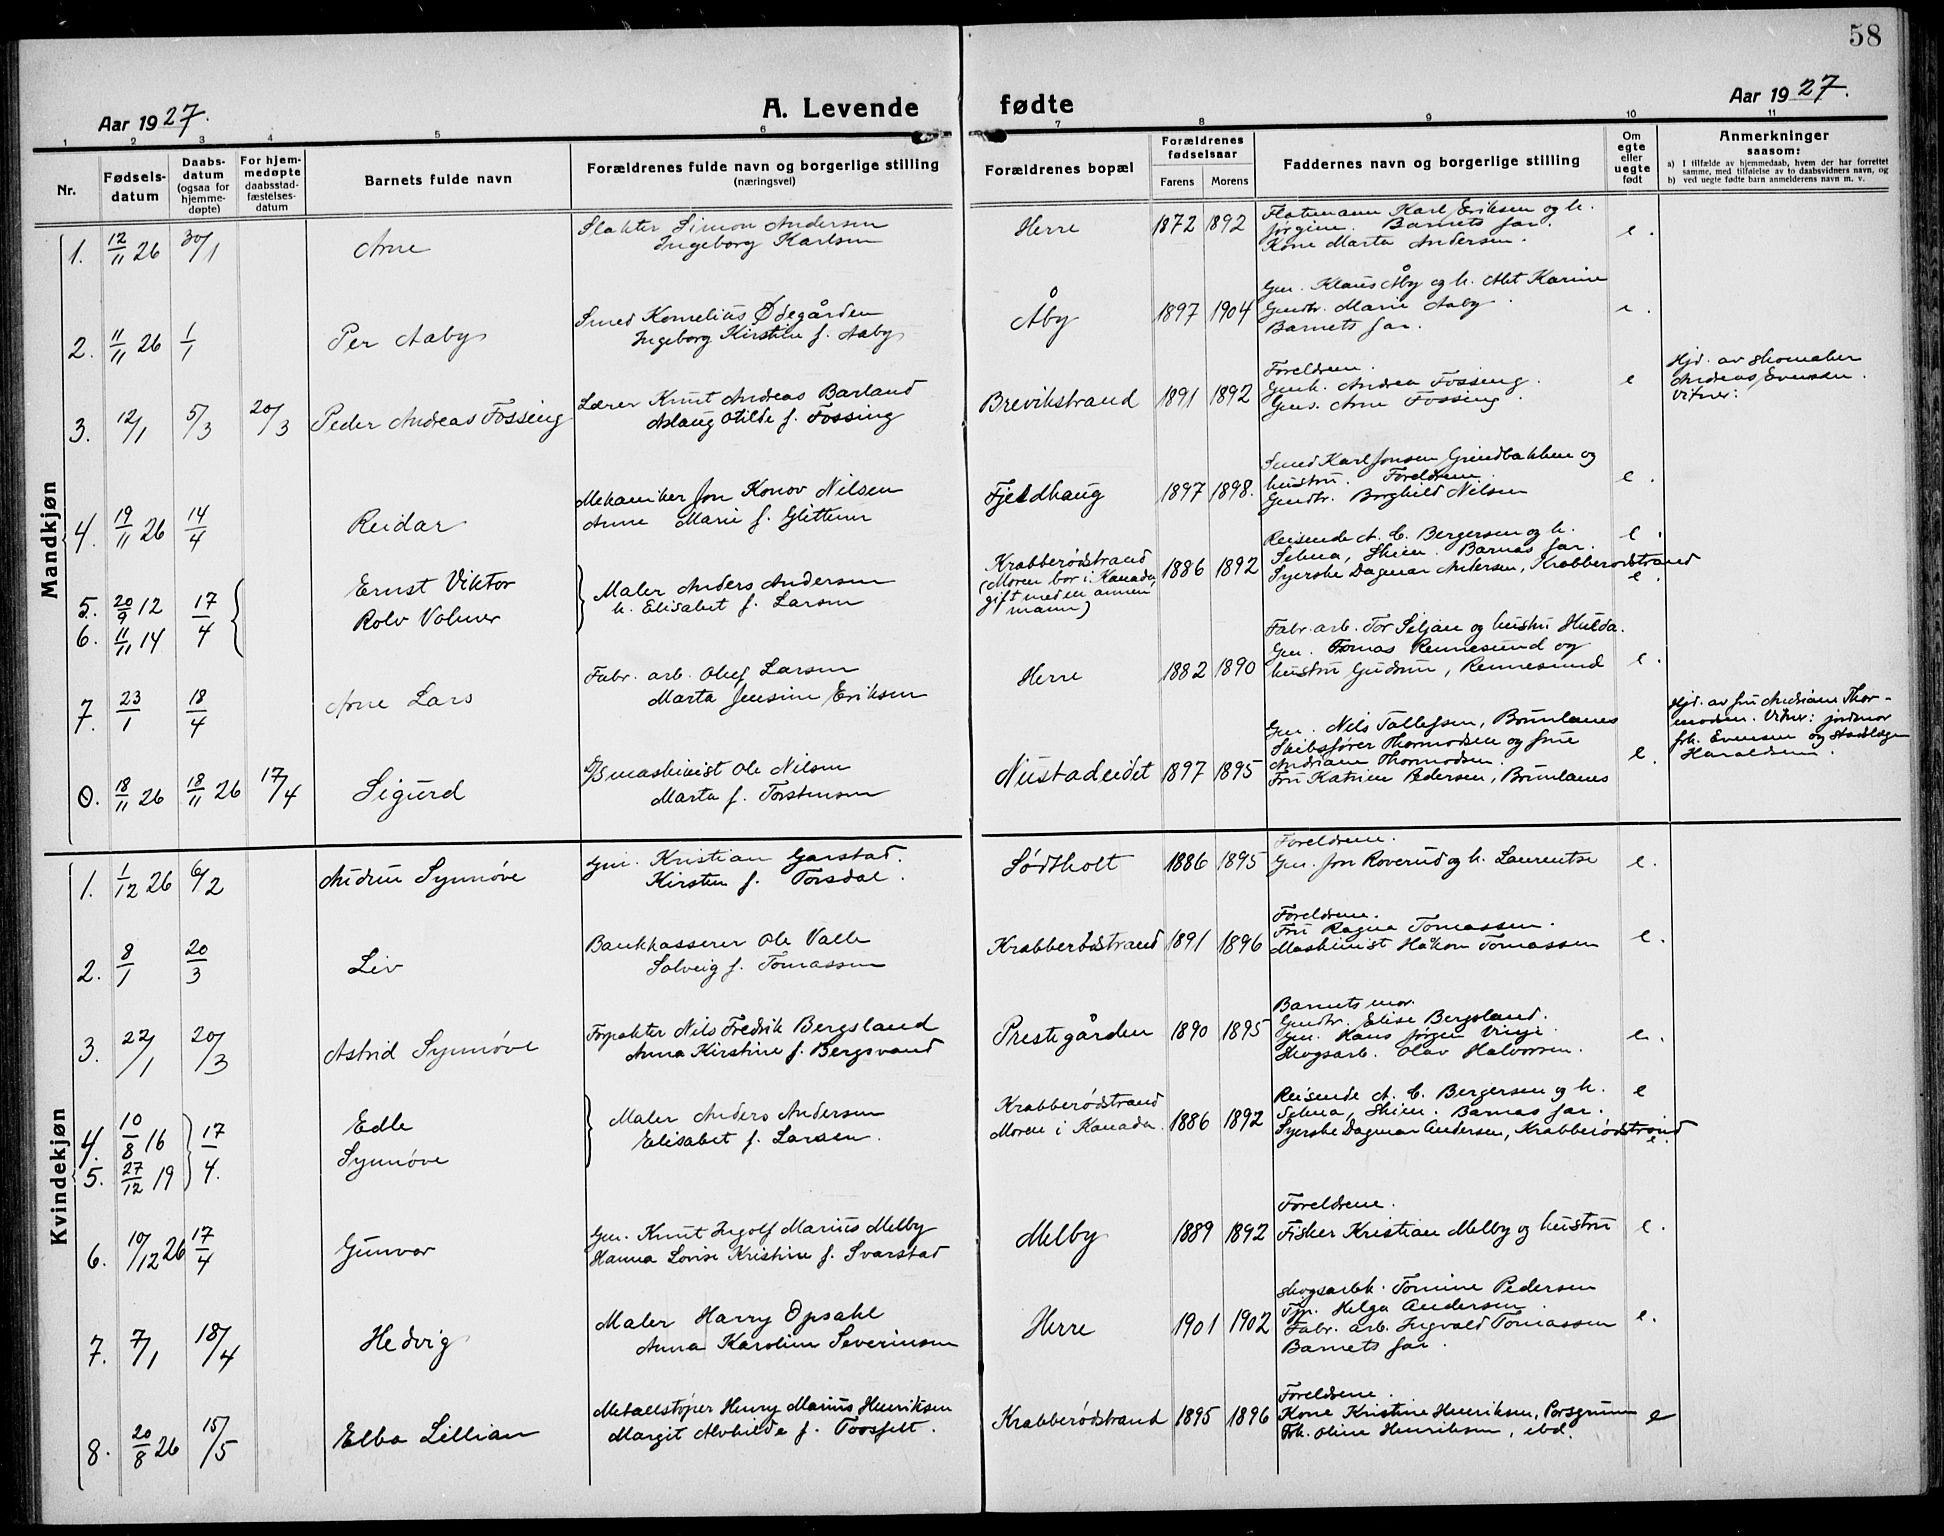 58
Aar 1927.
A. Levende fødte
Aar 1927.
1 2 3 4 5 6 7 8 9 10 11
Nr.
Fødsels-
datum
Daabs-
datum
(ogsaa for
hjemme-
døpte)
For hjem-
medøpte
daabsstad-
fæstelses-
datum
Barnets fulde navn
Forældrenes fulde navn og borgerlige stilling
(næringsvei)
Forældrenes bopæl
Forældrenes
fødselsaar
Farens Morens
Faddernes navn og borgerlige stilling
Om
egte
eller
uegte
født
Anmerkninger
saasom:
a) I tilfælde av hjemmedaab, hvem der har forrettet
samme, med tilføielse av to daabsvidners navn, og
b) ved uegte fødte barn anmelderens navn m. v.
Mandkjøn
1. 12/11 26 30/1 Arne
Slakter Simon Andersen
Ingeborg Karlsen
Herre 1872 1892
Flatmann Karl Eriksen og h.
Jørgine. Barnets far.
Kone Marta Andersen.
e.
2. 11/11 26 1/1 Per Aaby
Smed Kornelius Ødegården
Ingeborg Kirstine f. Aaby
Åby 1897 1904
Gm. Klaus Åby og h. Alet Karine
Gmdtr. Marie Aaby
Barnets far.
e.
3. 12/1 5/3 20/3 Peder Andreas Fossing
Lærer Knut Andreas Barland
Aslaug Otilde f. Fossing
Brevikstrand 1891 1892
Foreldrene.
Gmk. Andrea Fossing.
Gms. Arne Fossing.
e
Hjd. av skomaker
Andreas Evensen.
Vitner:
4. 19/11 26 14/4 Reidar
Mekaniker Jon Konov Nilsen
Anne Marie f. Glittum
Fjeldhaug 1897 1898.
Smed Karl Jonsen Grindbakken og
hustru. Foreldrene.
Gmdtr. Borghild Nilsen
e.
5. 20/9 12 17/4 Ernst Viktor
6. 11/11 14 Rolv Volmer
Maler Anders Andersen
h. Elisabet f. Larsen
Krabberødstrand
(Moren bor i Kanada,
gift med en annen
mann)
1886 1892
Reisende A. C. Bergersen og h.
Selma, Skien. Barnas far.
Syerske Dagmar Andersen, Krabberødstrand
e.
e.
7. 23/1 18/4 Arne Lars
Fabr. arb. Oluf Larsen
Marta Jensine Eriksen
Herre 1882 1890
Fabr. arb. Tor Seljan og hustru Hulda.
Gm. Tomas Rennesund og
hustru Gudrun, Rennesund
e.
0. 18/11 26 18/11 26 17/4 Sigurd
D/S maskinist Ole Nilsen
Marta f. Torstensen
Nustadeidet 1897 1895
Gm. Nils Tallefsen, Brunlanes
Skibsfører Thormodsen og frue
Andriane Thormodsen.
Fru Katrine Pedersen, Brunlanes
e.
Hjd. av fru Andriane Thor-
modsen. Vitner: jordmor
frk. Evensen og stadslæge
Haraldsen.
Kvindekjøn
1. 1/12 26 6/2 Andrine Synnøve
Gm. Kristian Garstad.
Kirsten f. Torsdal.
Sødtholt 1886 1895
Foreldrene.
Gm. Jon Roverud og h. Laurentse
e.
2. 8/1 20/3 Liv
Bankkasserer Ole Valle
Solveig f. Tomassen
Krabberødstrand 1891 1896
Foreldrene.
Fru Ragna Tomassen.
Maskinist Håkon Tomassen
e.
3. 22/1 20/3 Astrid Synnøve
Forpakter Nils Fredrik Bergsland
Anna Kirstine f. Bergsvand
Prestegården 1890 1895
Barnets mor.
Gmdtr. Elise Bergsland.
Gm. Hans Jørgen Vinje.
Skogsarb. Olav Halvorsen.
e.
4. 10/8 16 17/4. Edle
5. 27/12 19 Synnøve
Maler Anders Andersen
Elisabet f. Larsen.
Krabberødstrand
Moren i Kanada.
1886 1892
Reisende A. C. Bergersen og h.
Selma, Skien. Barnas far.
Syerske Dagmar Andersen, Krabberødstrand
e
e.
6. 10/12 26 17/4 Gunvor
Gm. Knut Ingolf Marius Melby
Hanna Lovise Kristine f. Svarstad
Melby 1889 1892
Foreldrene.
Fisker Kristian Melby og hustru
e.
7. 7/1 18/4 Hedvig
Maler Harry Opsahl
Anna Karoline Severinsen
Herre 1901 1902
Skogsarbk. Tomine Pedersen
Tjp. Helga Andersen.
Fabr. arb. Ingvald Tomassen
Barnets far.
e.
8. 20/8 26 15/5 Elba Lillian
Metallstøper Henry Marius Henriksen
Margit Alvhilde f. Toosfelt.
Krabberødstrand 1895 1896
Foreldrene.
Kone Kristine Henriksen, Porsgrunn
Frk. Oline Henriksen, ibd.
e